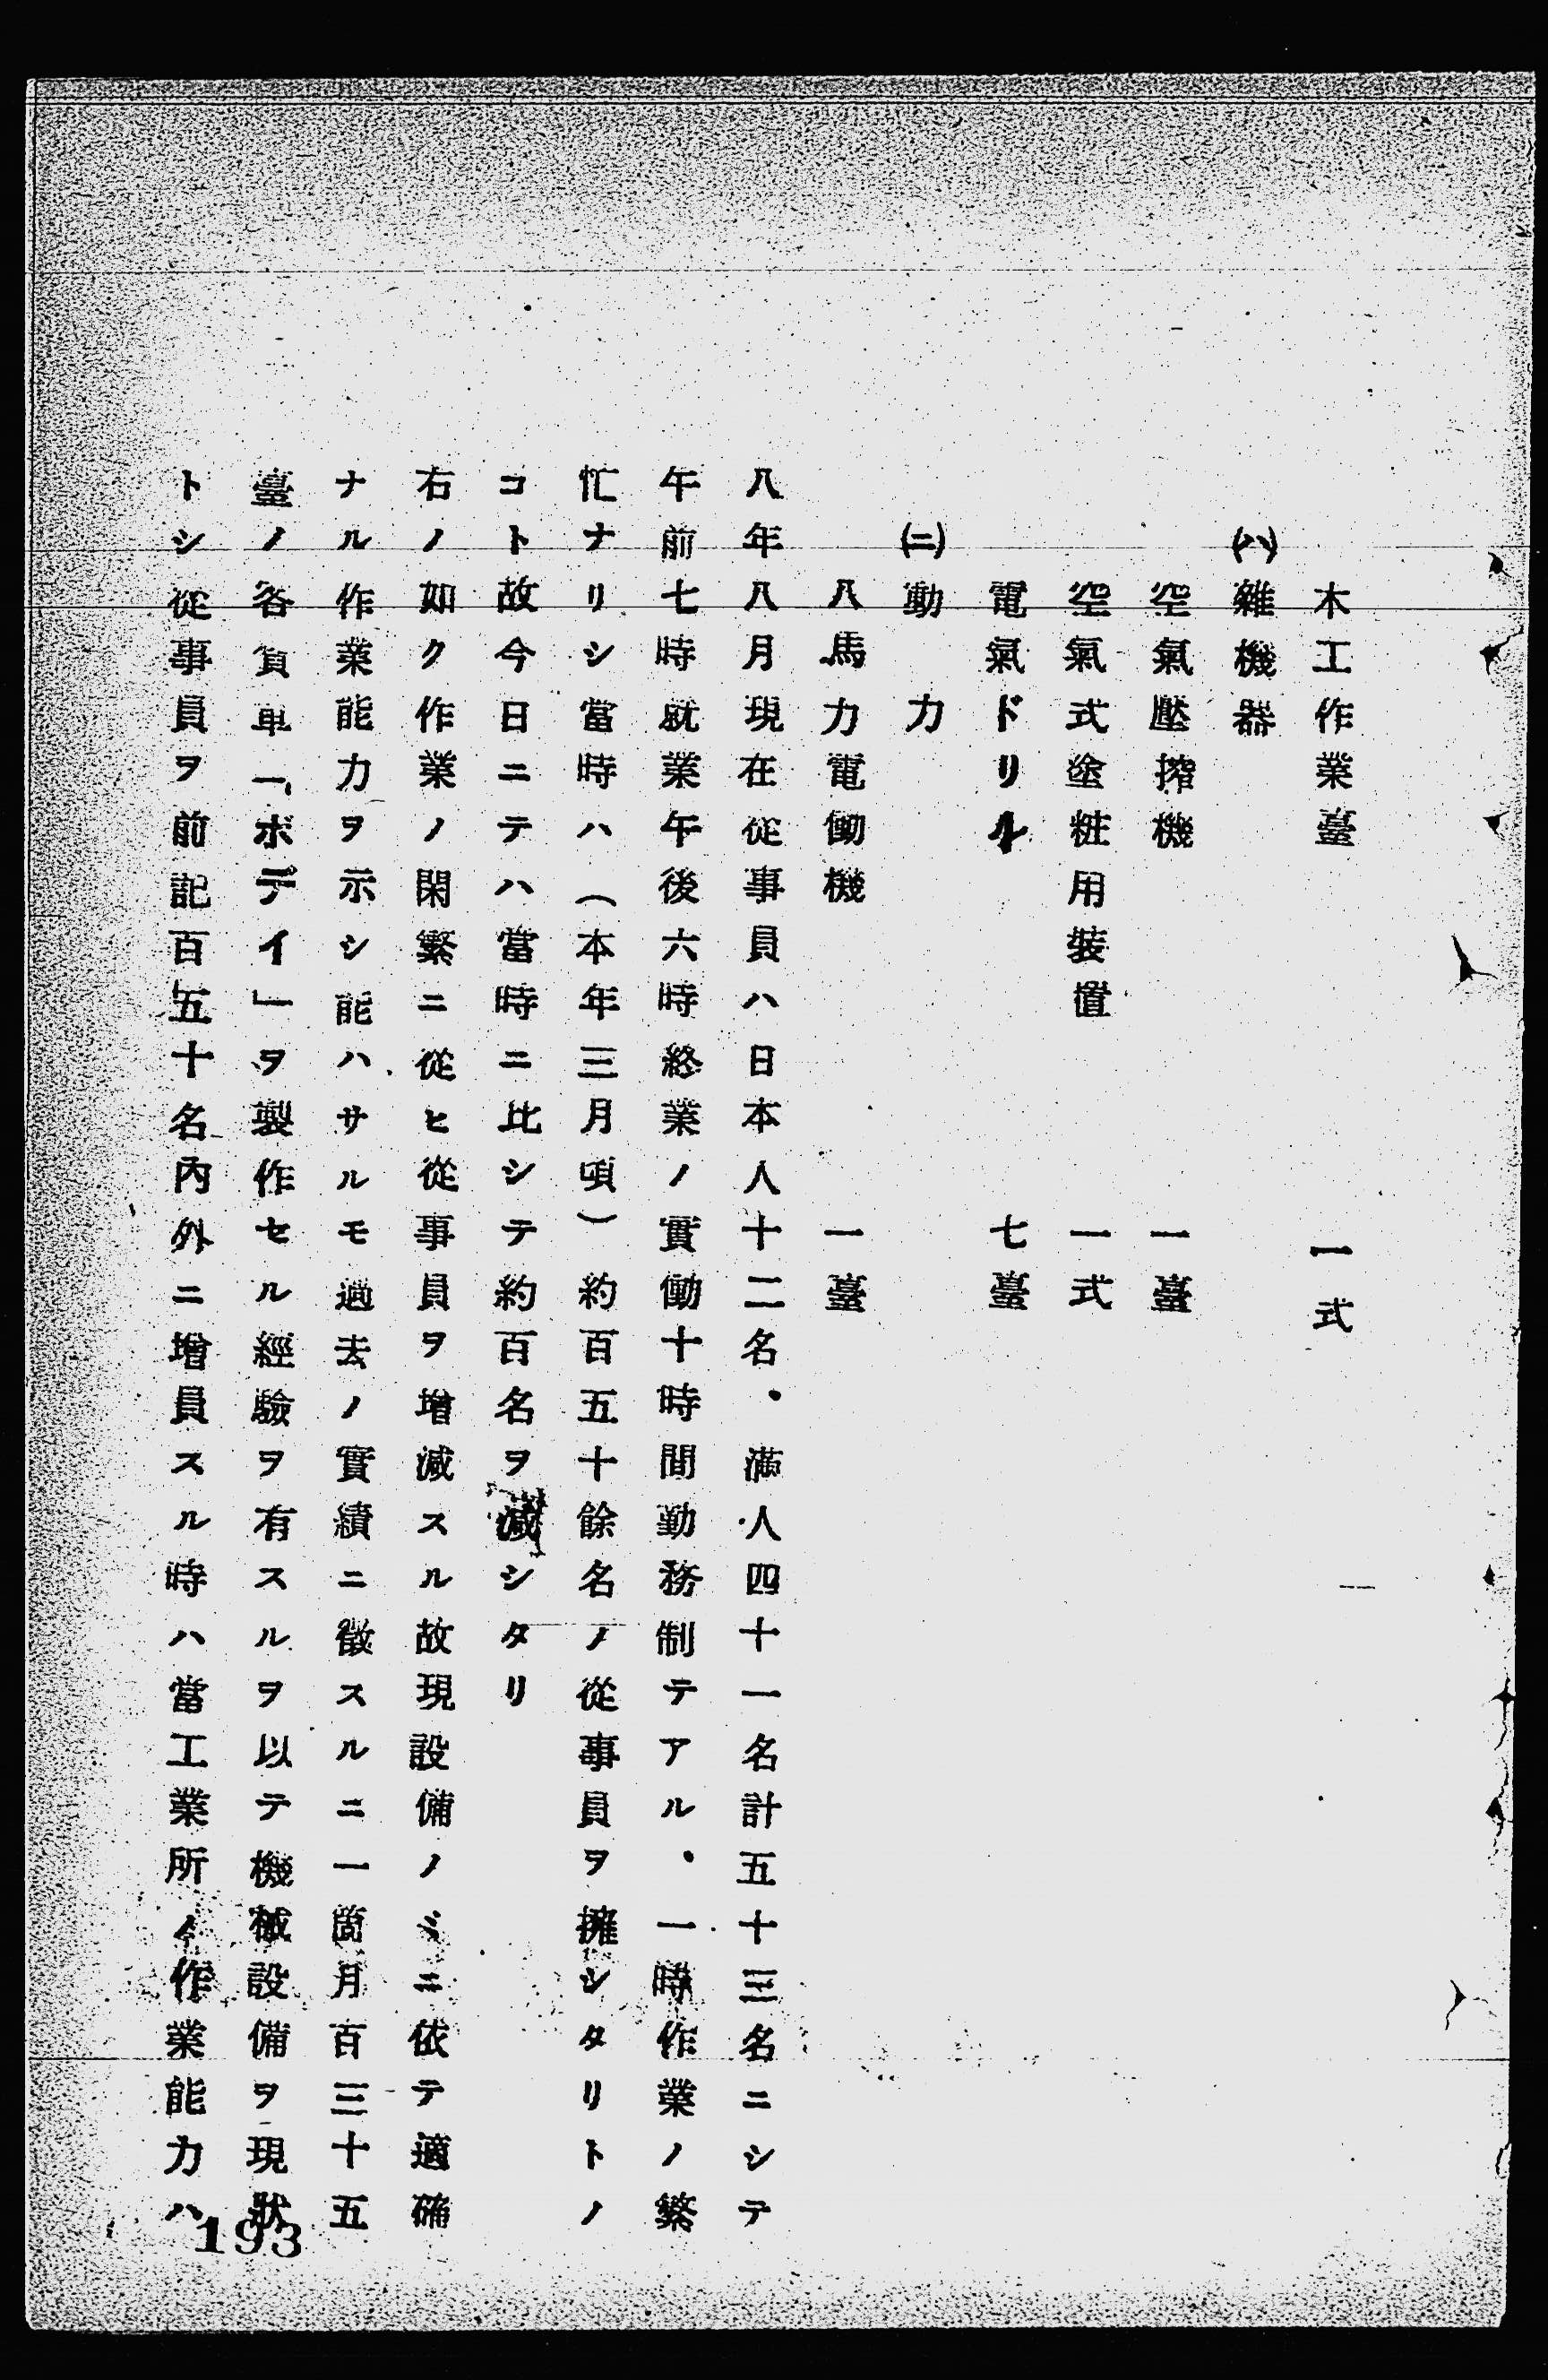 木工作業臺　一式
(ハ)雜機器
空氣壓搾機　一臺
空氣式塗粧用裝置　一式
電氣ドリル　七臺
(ニ)動力
八馬力電働機　一臺
八年八月現在從事員ハ日本人十二名、滿人四十一名計五十三名ニシテ
午前七時就業午後六時終業ノ實働十時間勤務制テアル、一時作業ノ繁
忙ナリシ當時ハ(本年三月頃)約百五十餘名ノ從事員ヲ擁シタリトノ
コト故今日ニテハ當時ニ比シテ約百名ヲ減シタリ
右ノ如ク作業ノ閑繁ニ從ヒ從事員ヲ增減スル故現設備ノミニ依テ適確
ナル作業能力ヲ示シ能ハサルモ過去ノ實績ニ徵スルニ一箇月百三十五
臺ノ各貨車「ボデイ」ヲ製作セル經驗ヲ有スルヲ以テ機械設備ヲ現狀
トシ從事員ヲ前記百五十名內外ニ增員スル時ハ當工業所ノ作業能力ハ
193